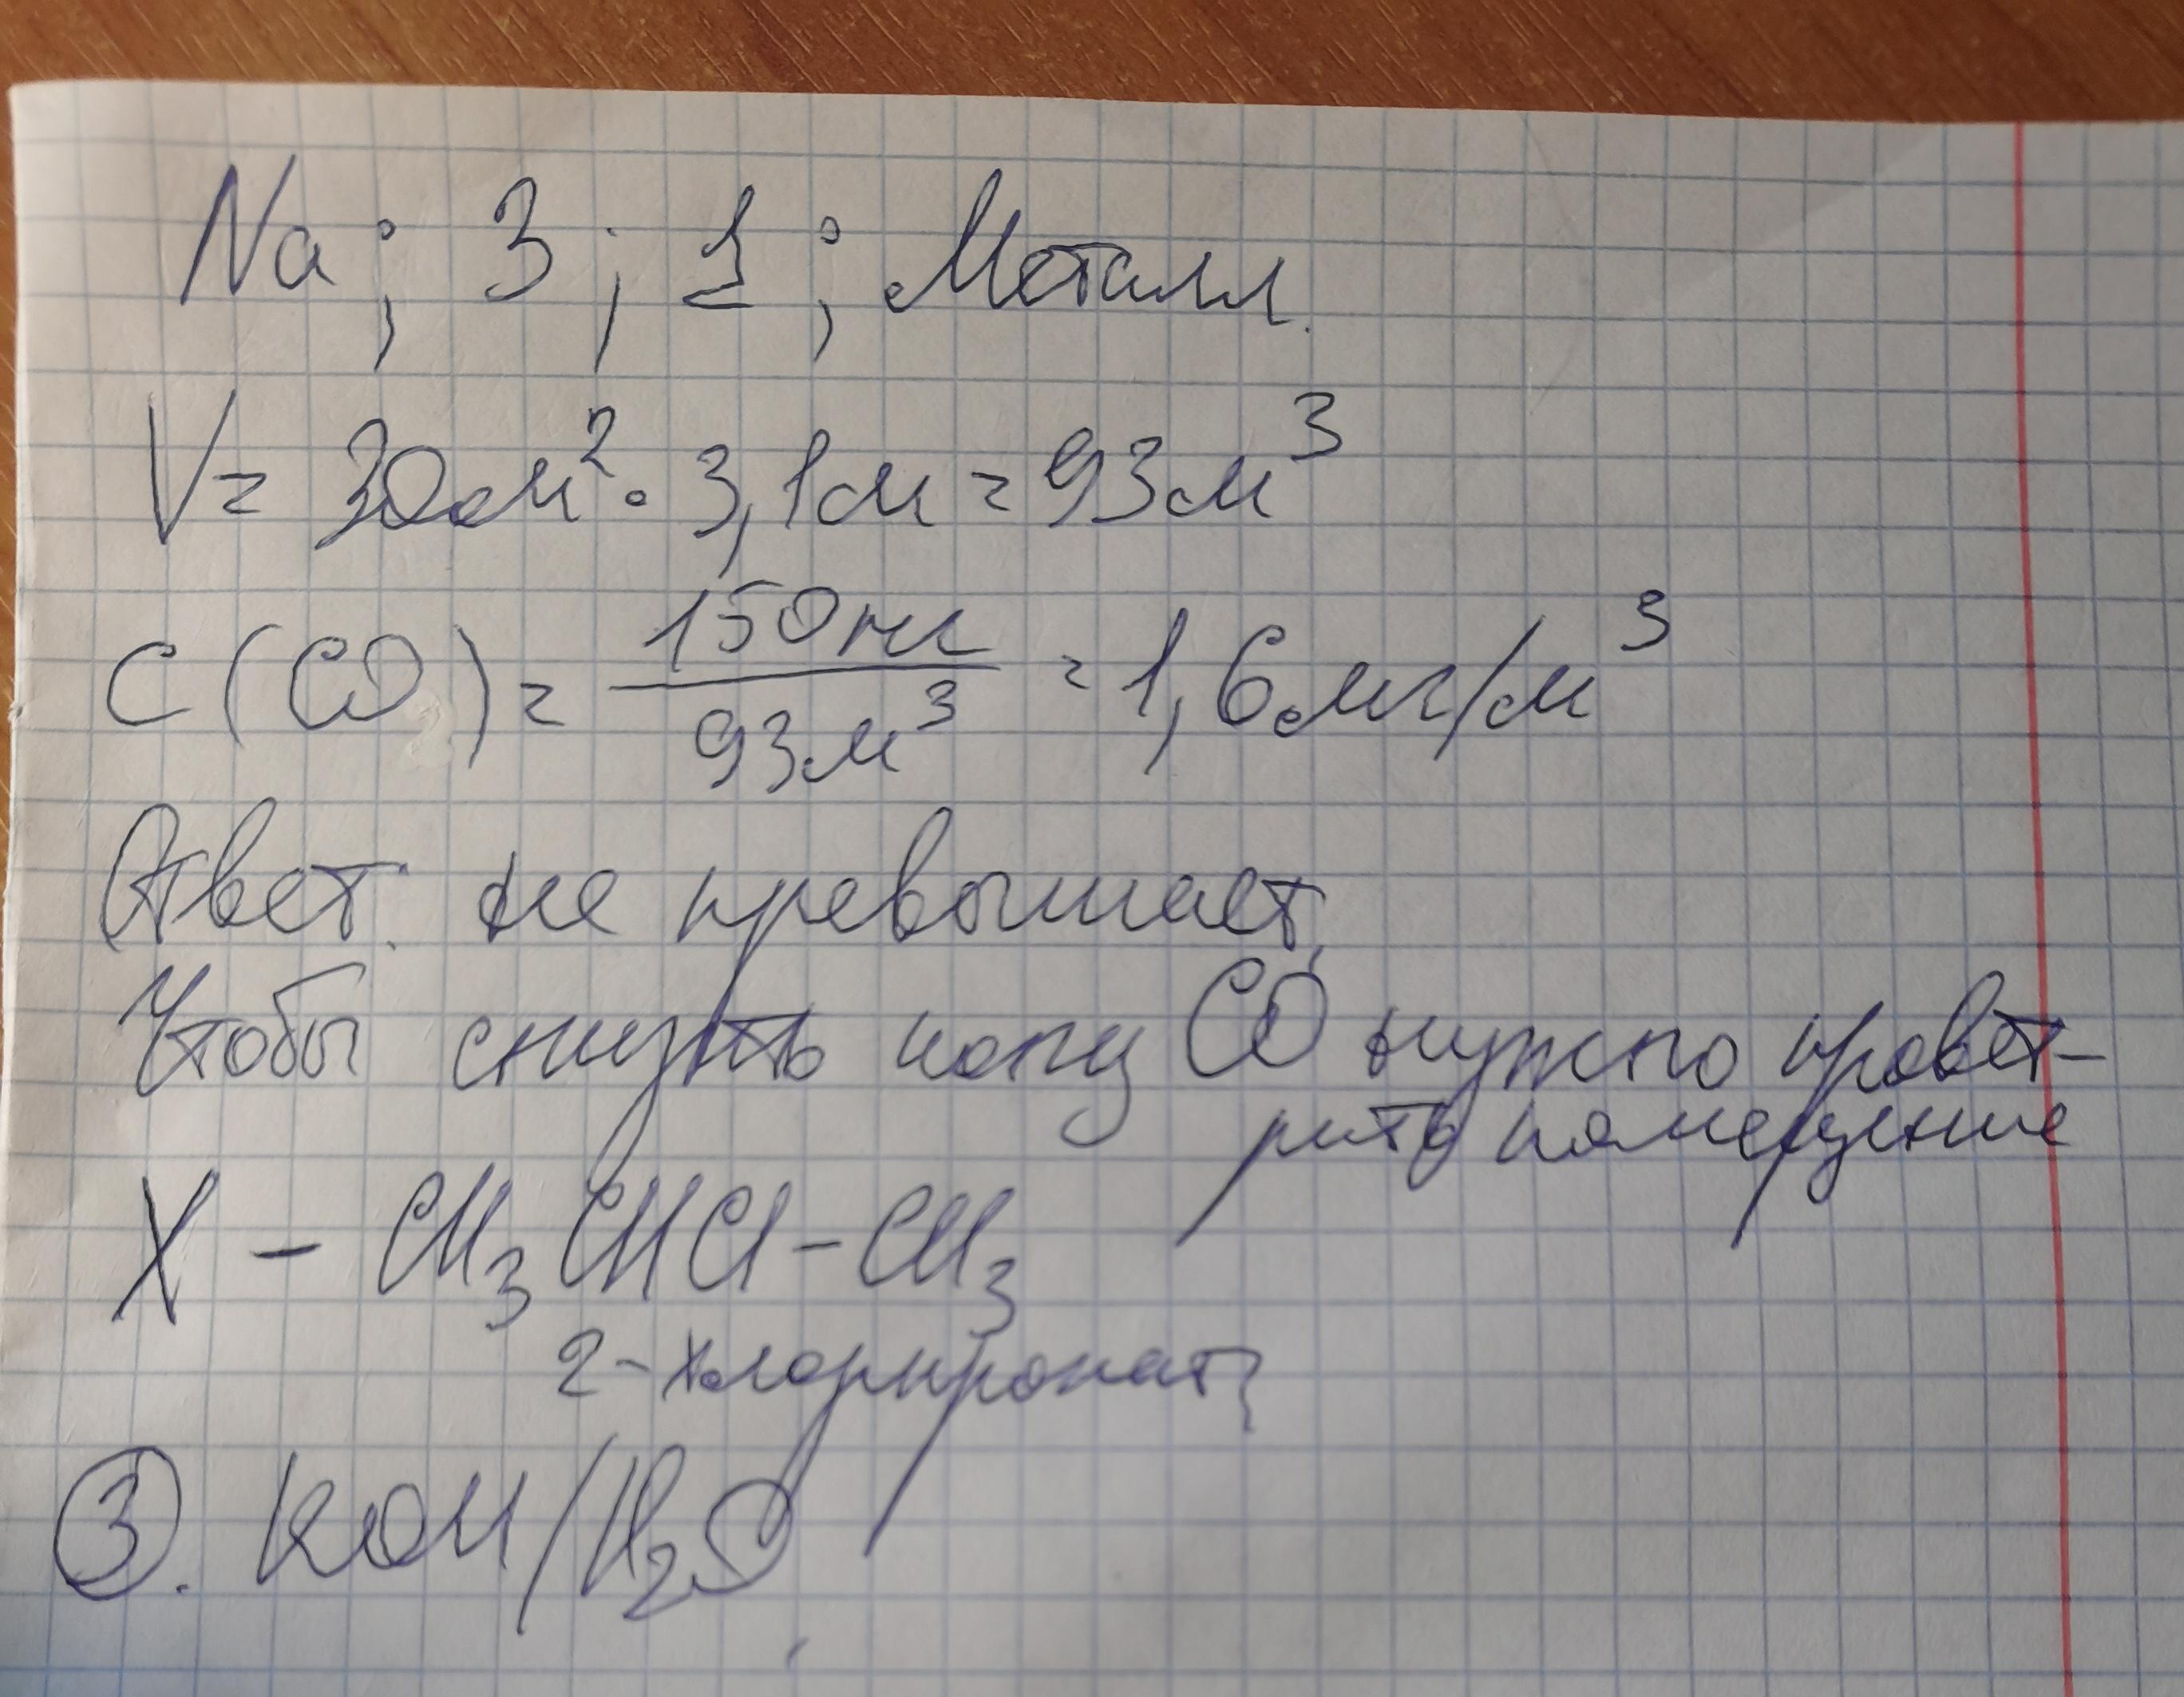 Na; 3; 1; Металл.
V= 30м²·3,1м=93м³
C(CO)= 150мг/93м³ =1,6мг/м³
Ответ: не превышает,
Чтобы снизть конц CO нужно провет-
рить помещение
X – CH₃CHCl–CH₃
2-хлорпропат
③. KOH/H₂O